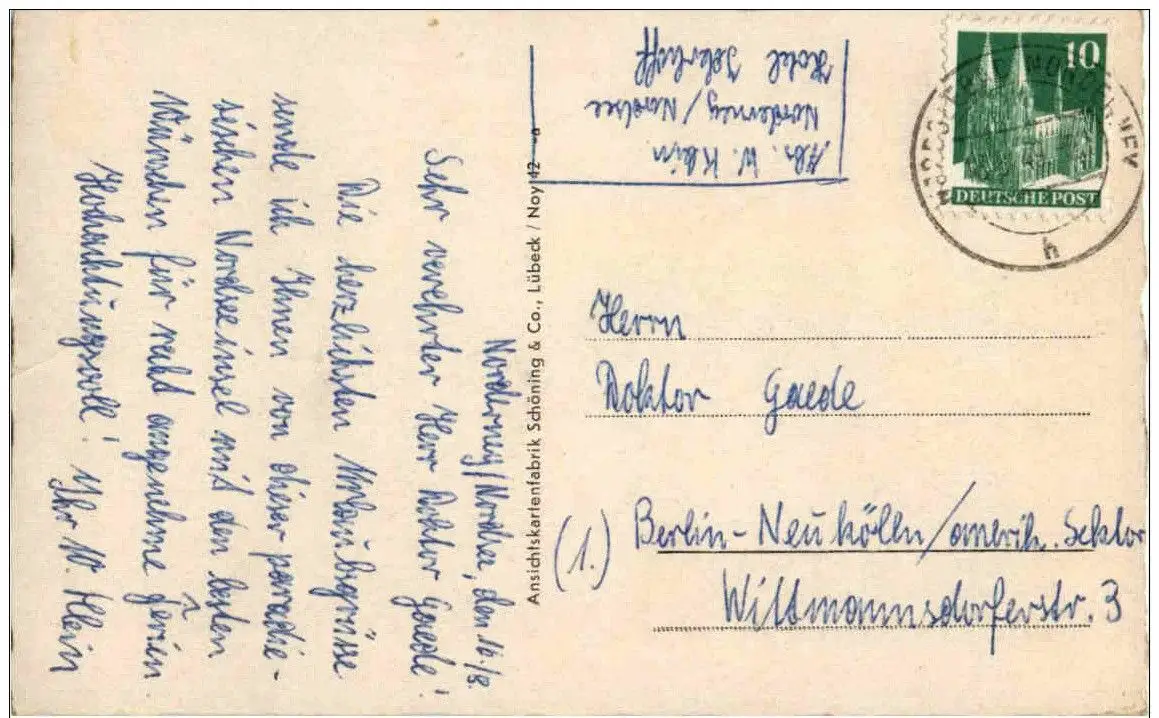 Norderney/Nordsee, den 16./8.
Sehr verehrter Herr Doktor Gaede!
Die herzlichsten Urlaubsgrüsse
sende ich Ihnen von dieser paradie-
sischen Nordseeinsel mit den besten
Wünschen für recht angenehme Ferien
Hochachtungsvoll! Ihr W. Klein
Ansichtskartenfabrik Schöning & Co., Lübeck / Noy 42
Abs. W. Klein
Norderney/Nordsee
Hotel
10
DEUTSCHE POST
h
Herrn
Doktor Gaede
(1.) Berlin-Neukölln/amerik. Sektor
Wittmannsdorferstr. 3